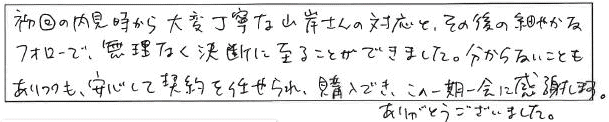 初回の内見時から大変丁寧な山岸さんの対応と、その後の細やかな
フォローで、無理なく決断に至ることができました。分からないことも
ありつつも、安心して契約を任せられ、購入でき、この一期一会に感謝します。
ありがとうございました。